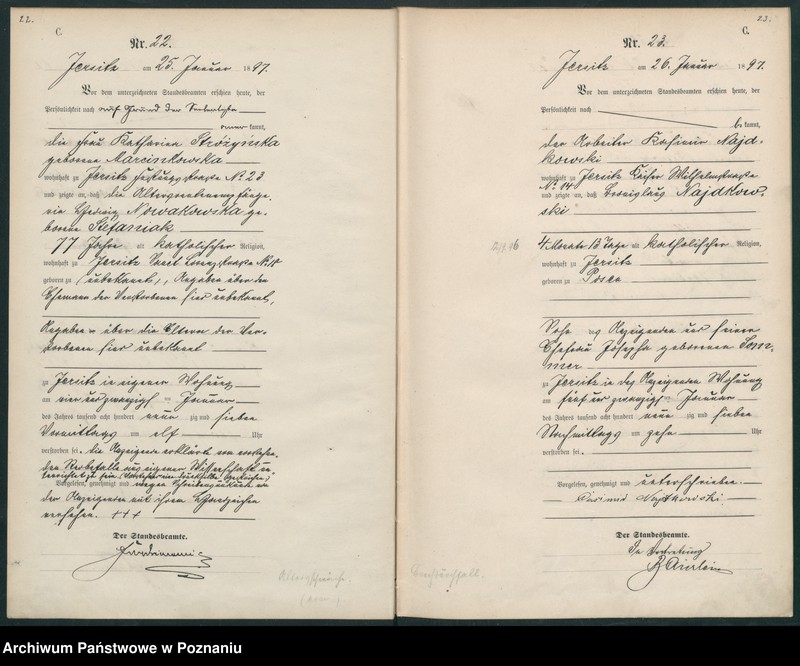 22.
C.
Nr. 22.
Jersitz am 25. Januar 1897.
Vor dem unterzeichneten Standesbeamten erschien heute, der
Persönlichkeit nach auf Grund der
kannt,
die Frau Katharina Stróżyńska
geborene Marcinkowska
wohnhaft zu Jersitz No 22
und zeigte an, daß die
Hedwig Nowakowska ge-
borene Stefaniak
77 Jahre alt katholischer Religion,
wohnhaft zu Jersitz
geboren zu unbekannt, Angaben über den
Ehemann der Verstorbenen hier unbekannt,
Angaben über die Eltern der Ver-
storbenen hier unbekannt
zu Jersitz in eigener Wohnung
am vier und zwanzigsten Januar
des Jahres tausend acht hundert neun zig und sieben
Vormittags um elf Uhr
verstorben sei. die Anzeigende erklärte von
dem Sterbefalle aus eigener Wissenschaft
Vorgelesen, genehmigt und wegen von
der Anzeigenden mit ihrem Handzeichen
versehen. +++
Der Standesbeamte.
Altersschwäche
23.
C.
Nr. 23.
Jersitz am 26. Januar 1897.
Vor dem unterzeichneten Standesbeamten erschien heute, der
Persönlichkeit nach
be kannt,
der Arbeiter Kasimir Najd-
kowski
wohnhaft zu Jersitz Kaiser Wilhelmstraße
No 14
und zeigte an, daß Bronislaus Najdkow-
ski
4 Monate 13 Tage alt katholischer Religion,
wohnhaft zu Jersitz
geboren zu Posen
Sohn des Anzeigenden und seiner
Ehefrau Josepha geborenen Som-
mer
zu Jersitz in des Anzeigenden Wohnung
am fünf und zwanzigsten Januar
des Jahres tausend acht hundert neun zig und sieben
Nachmittags um zehn Uhr
verstorben sei.
Vorgelesen, genehmigt und unterschrieben.
Kasimir Najdkowski
Der Standesbeamte.
In Vertretung
Archiwum Państwowe w Poznaniu